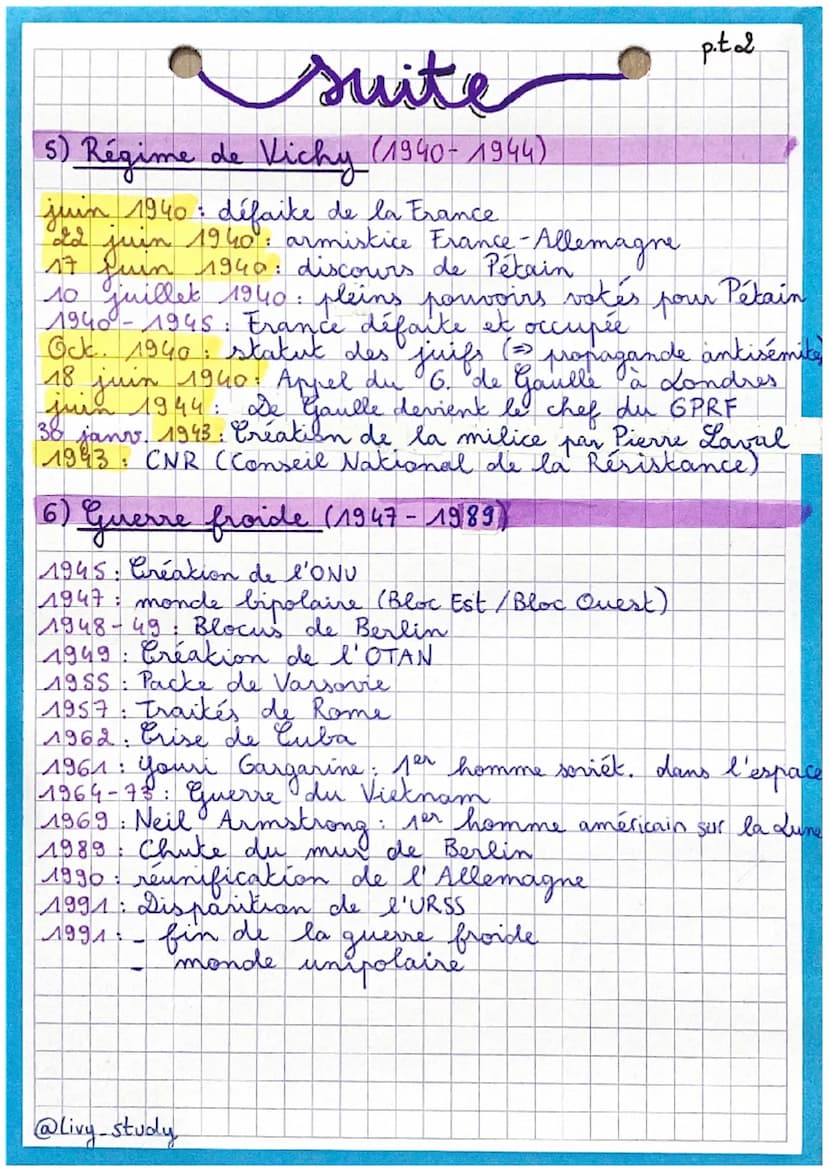 p.t 2
suite
5) Régime de Vichy (1940-1944)
juin 1940 : défaite de la France
22 juin 1940 : armistice France-Allemagne
17 juin 1940 : discours de Pétain
10 juillet 1940 : pleins pouvoirs votés pour Pétain
1940-1945 : France défaite et occupée
Oct. 1940 : statut des juifs (=> propagande antisémite)
18 juin 1940 : Appel du G. de Gaulle à Londres
juin 1944 : De Gaulle devient le chef du GPRF
30 janv. 1943 : Création de la milice par Pierre Laval
1943 : CNR (Conseil National de la Résistance)
6) Guerre froide (1947-1989)
1945 : Création de l'ONU
1947 : monde bipolaire (Bloc Est / Bloc Ouest)
1948-49 : Blocus de Berlin
1949 : Création de l'OTAN
1955 : Pacte de Varsovie
1957 : Traités de Rome
1962 : Crise de Cuba
1961 : Youri Gargarine : 1er homme soviét. dans l'espace
1964-73 : Guerre du Vietnam
1969 : Neil Armstrong : 1er homme américain sur la Lune
1989 : Chute du mur de Berlin
1990 : réunification de l'Allemagne
1991 : Disparition de l'URSS
1991 : - fin de la guerre froide
- monde unipolaire
@Livy_study